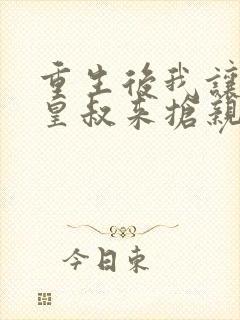 重生後我讓
皇叔來搶親
今日東